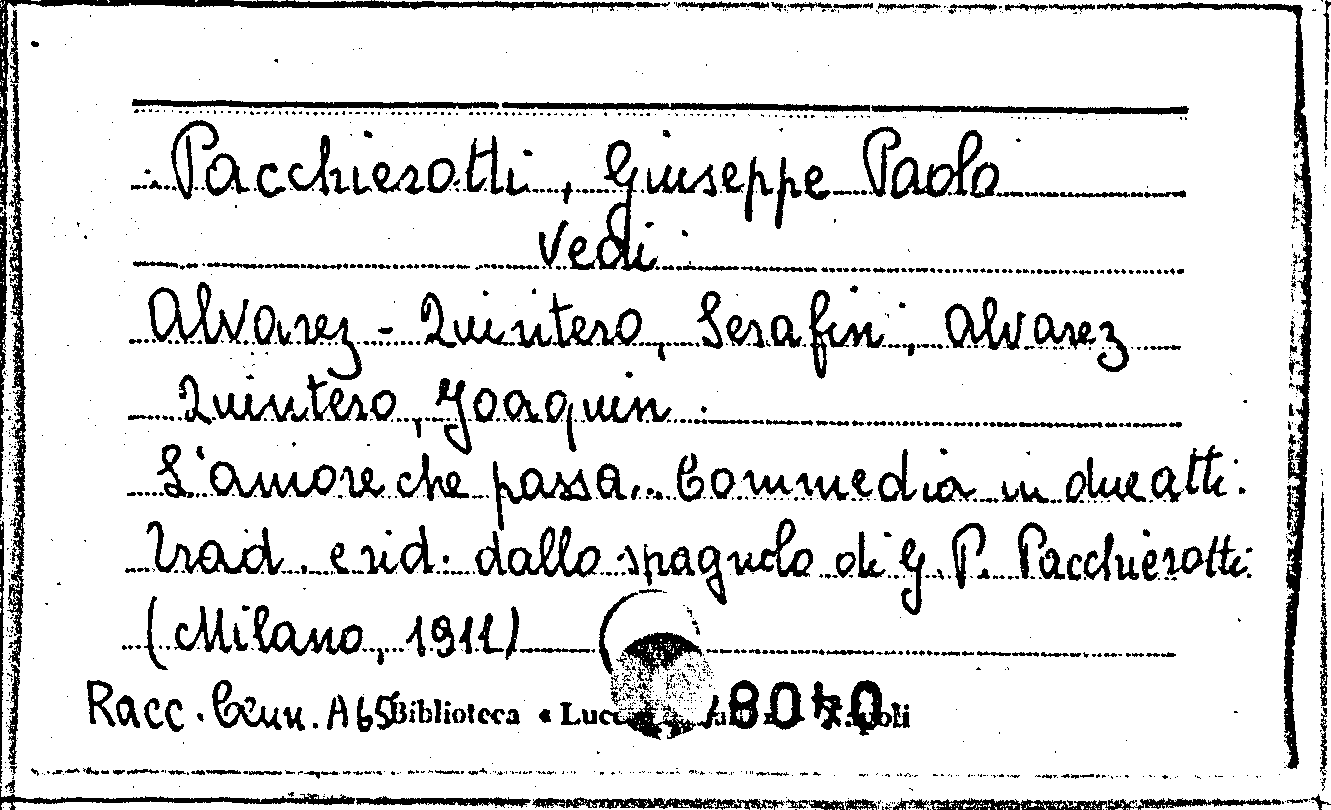 Pacchierotti, Giuseppe Paolo
Vedi
Alvarez-Quintero, Serafin, Alvarez
Quintero, Joaquin.
L'amore che passa.. Commedia in due atti.
Trad. e rid. dallo spagnolo di G. P. Pacchierotti.
(Milano, 1911)
Racc. A65 Biblioteca «